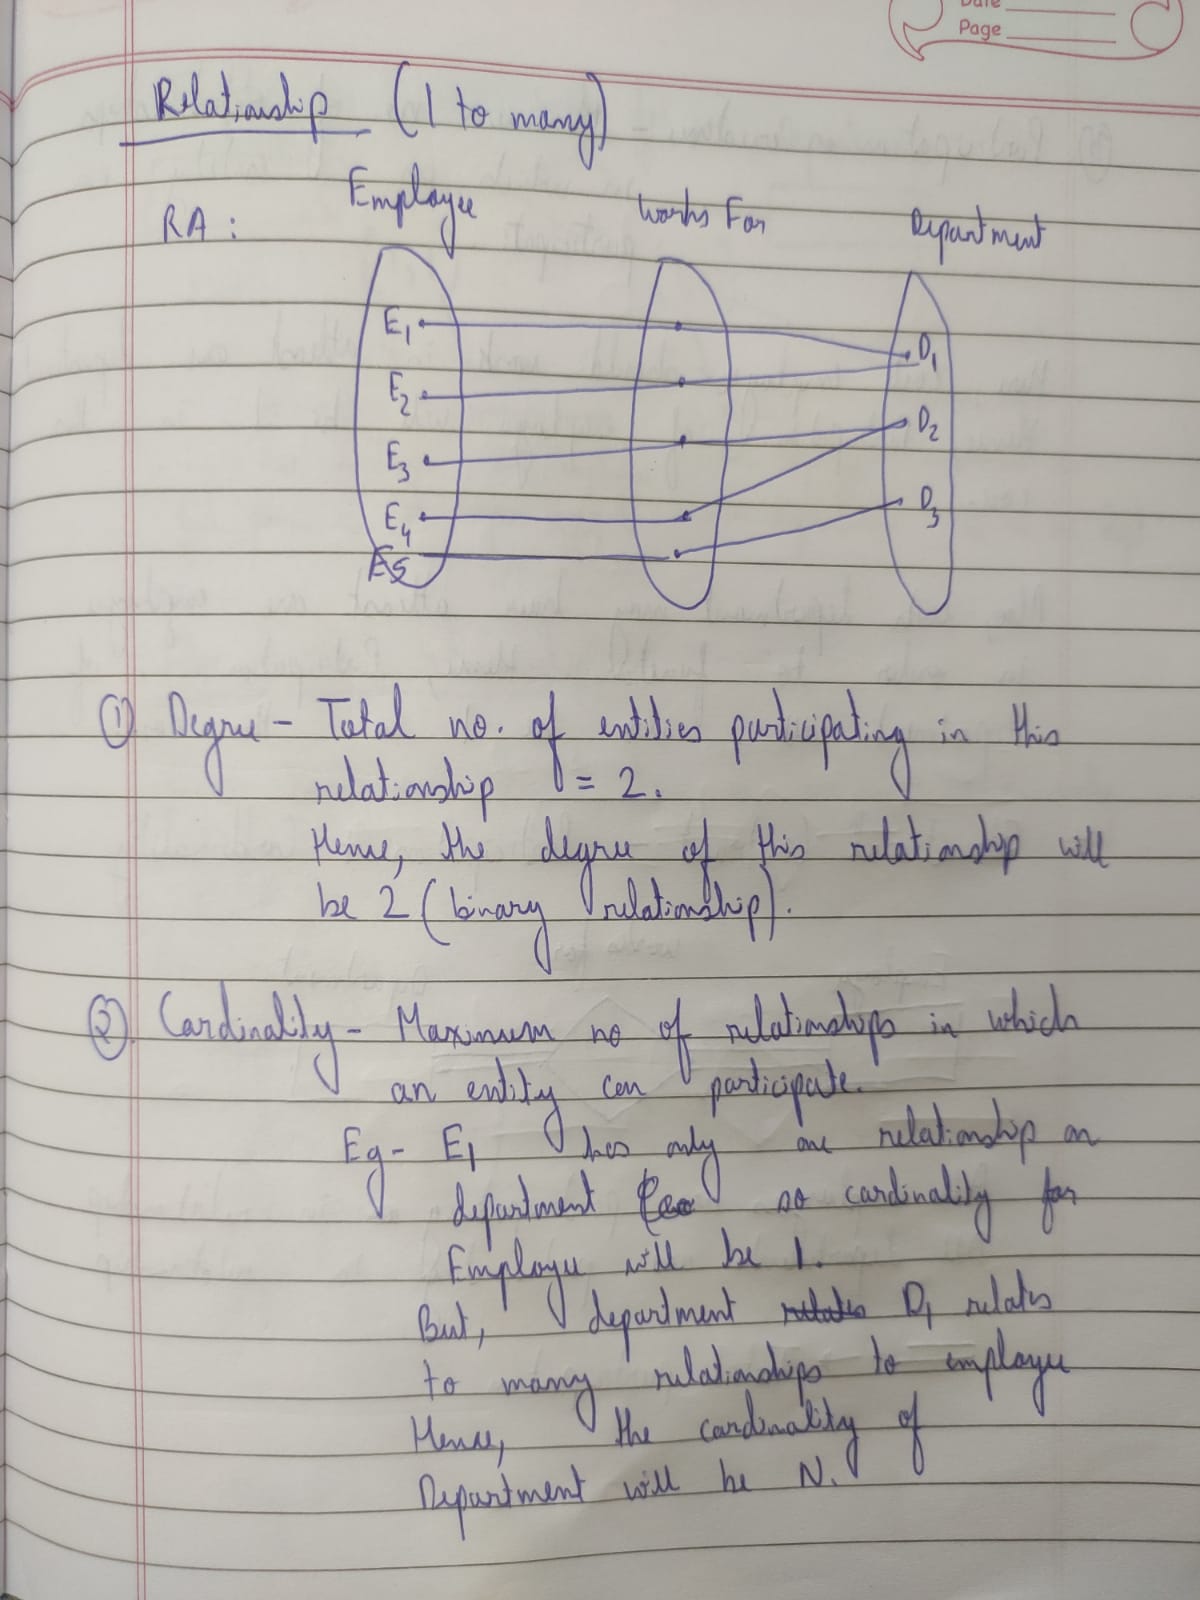 Date
Page
Relationship (1 to many)
RA : Employee Works For Department
E1 D1
E2 D2
E3 D3
E4
E5
① Degree - Total no. of entities participating in this
relationship = 2.
Hence, the degree of this relationship will
be 2 (binary relationship).
② Cardinality - Maximum no of relationships in which
an entity can participate.
Eg - E1 has only one relationship on
department so cardinality for
Employee will be 1.
But, department relates D1 relates
to many relationships to employee
Hence, the cardinality of
Department will be N.